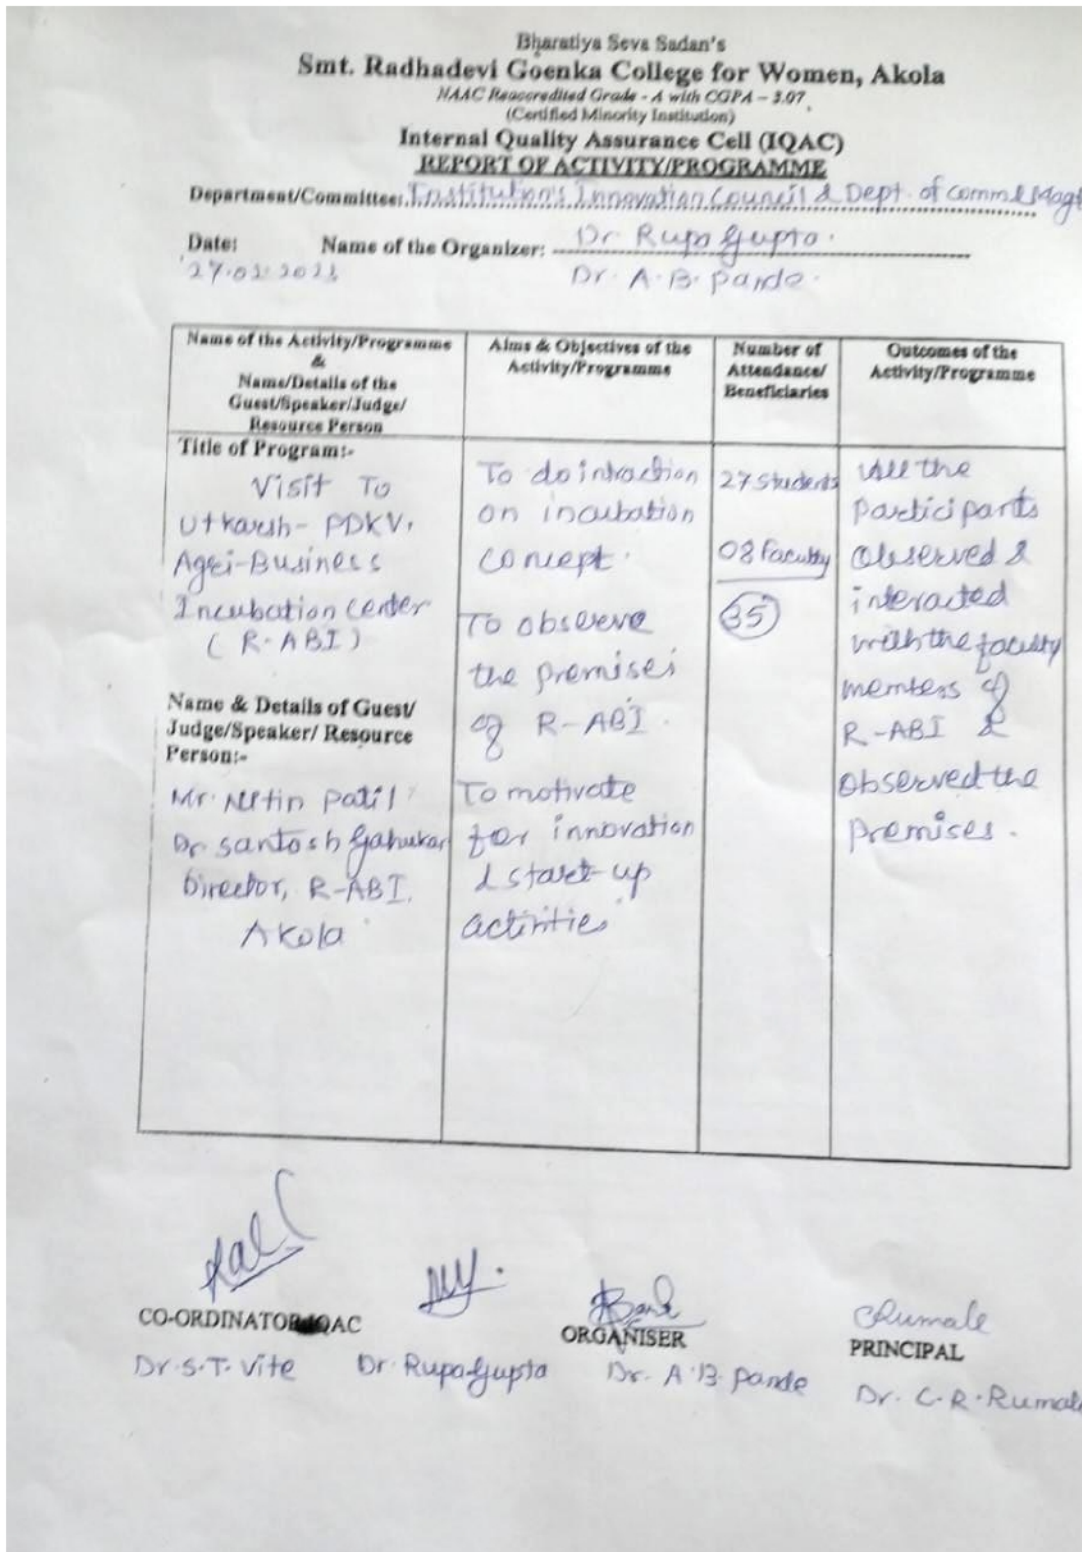 Bharatiya Seva Sadan's
Smt. Radhadevi Goenka College for Women, Akola
NAAC Reaccredited Grade - A with CGPA – 3.07
(Certified Minority Institution)
Internal Quality Assurance Cell (IQAC)
REPORT OF ACTIVITY/PROGRAMME
Department/Committee: Institution's Innovation Council & Dept. of Comm & Magt
Date: Name of the Organizer: Dr Rupa Gupta.
Dr. A. B. Pande.
Name of the Activity/Programme
&
Name/Details of the
Guest/Speaker/Judge/
Resource Person
Aims & Objectives of the
Activity/Programme
Number of
Attendance/
Beneficiaries
Outcomes of the
Activity/Programme
Title of Program:-
Visit To
Utkarsh- PDKV,
Agri-Business
Incubation Center
( R-ABI )
Name & Details of Guest/
Judge/Speaker/ Resource
Person:-
Mr. Nitin Patil
Dr Santosh Gahukar
Director, R-ABI.
Akola
To do intraction
on incubation
concept.
To observe
the premises
of R-ABI.
To motivate
for innovation
& start-up
activities
27 Students
08 Faculty
35
All the
participants
Observed &
interacted
with the faculty
members of
R-ABI &
Observed the
Premises.
CO-ORDINATOR IQAC
ORGANISER
PRINCIPAL
Dr. S. T. Vite Dr. Rupa Gupta Dr. A. B. Pande Dr. C. R. Rumale